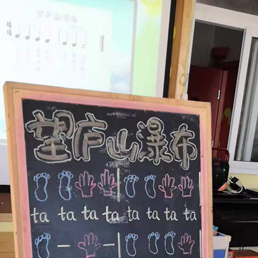 望庐山瀑布
ta ta ta ta ta ta ta